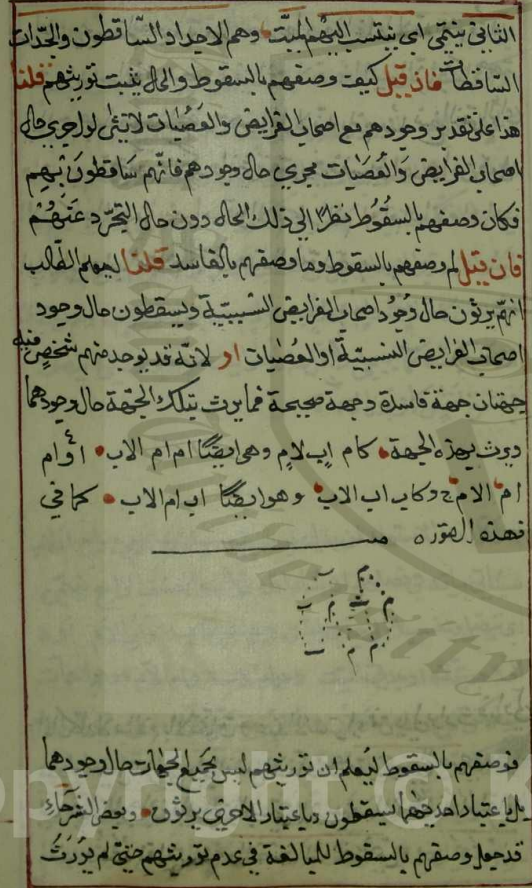 الثاني ينتمي اي ينتسب اليهم الميت وهم الاجداد الساقطون والجدات
الساقطات فان قيل كيف وصفهم بالسقوط والحال يثبت توريثهم قلنا
هذا على تقدير وجودهم مع اصحاب الفرايض والعصبات لا يثنى لو اجري حال
اصحاب الفرايض والعصبات مجرى حال وجودهم فانهم ساقطون بهم
فكان وصفهم بالسقوط نظرا الى ذلك الحال دون حال التجرد عنهم
فان قيل لم وصفهم بالسقوط وما وصفهم بالفاسد قلنا ليعلم الطالب
انهم يرثون حال وجود اصحاب الفرايض السببية ويسقطون حال وجود
اصحاب الفرايض النسبية او العصبات او لانه قد يوجد منهم شخص فيه
جهتان جهة فاسدة وجهة صحيحة فما يرث بتلك الجهة حال وجودهما
ويرث بهذه الجهة كام اب لام وهي ايضا ام ام الاب او ام
ام الام وكاب اب الاب وهو ايضا اب ام الاب كما في
هذه الصورة
فوصفهم بالسقوط ليعلم ان توريثهم ليس بجميع الجهات حال وجودهما
بل باعتبار احديهما يسقطون وباعتبار الاخرى يرثون وبعض الشراح
قد جعل وصفهم بالسقوط للمبالغة في عدم توريثهم حتى لم يورث